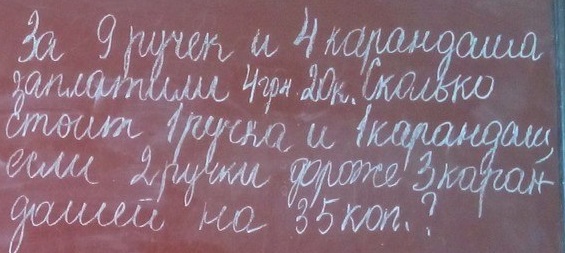 За 9 ручек и 4 карандаша
заплатили 4грн 20к. Сколько
стоит 1ручка и 1карандаш,
если 2 ручки дороже 3каран-
дашей на 35коп.?